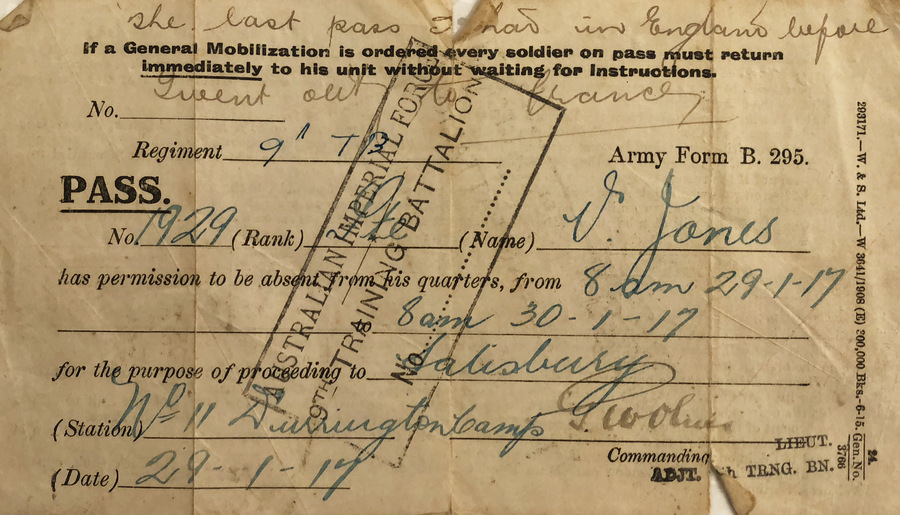 the last pass I had in England before
If a General Mobilization is ordered every soldier on pass must return
immediately to his unit without waiting for Instructions.
I went out to France
No.
Regiment 9th TB
Army Form B. 295.
PASS.
No. 1929 (Rank) Pte (Name) V. Jones
has permission to be absent from his quarters, from 8 am 29-1-17
8 am 30-1-17
for the purpose of proceeding to Salisbury
(Station) No 11 Durrington Camp
Commanding
LIEUT.
ADJT. TRNG. BN.
(Date) 29-1-17
AUSTRALIAN IMPERIAL FORCE
9TH TRAINING BATTALION
No.
293171.—W. & S. Ltd.—W 3641/1908 (E) 200,000 Bks.-6-15. Gen. No. 24/3766